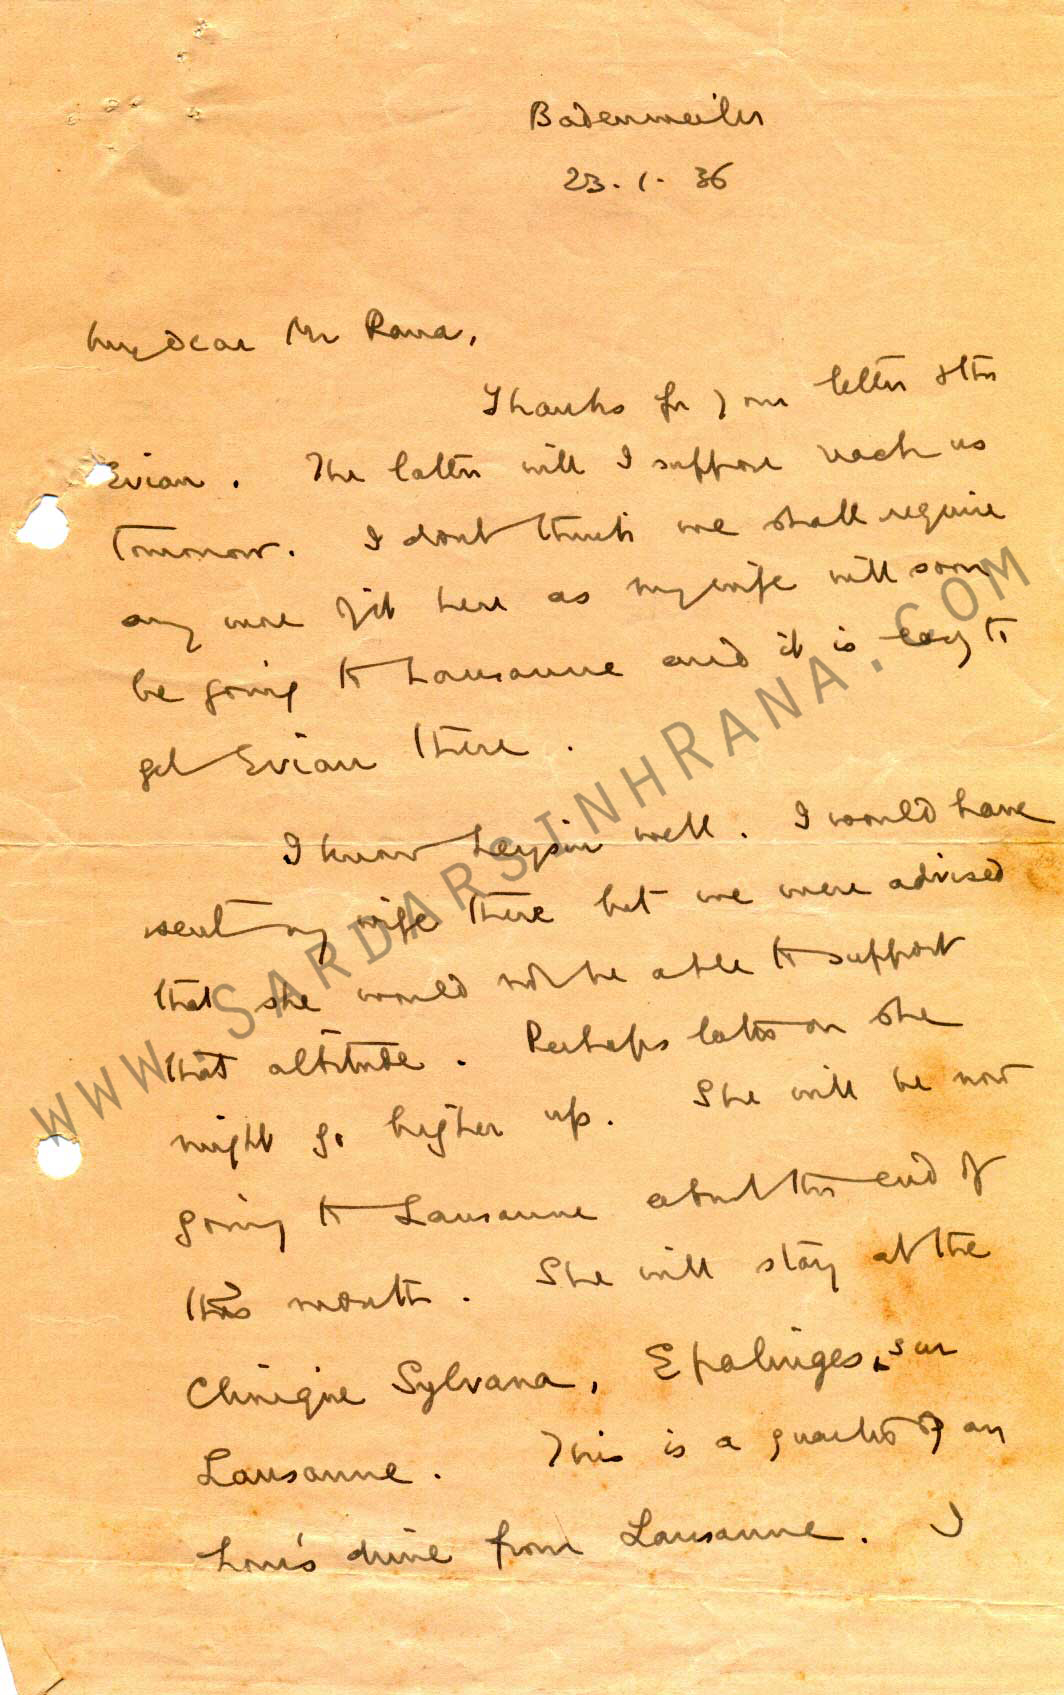 Badenweiler
23. 1. 36
My dear Mr Rana,
Thanks for your letter & the
Evian. The latter will I suppose reach us
tomorrow. I dont think we shall require
any more of it here as my wife will soon
be going to Lausanne and it is easy to
get Evian there.
I know Leysin well. I would have
sent my wife there but we were advised
that she would not be able to support
that altitude. Perhaps later on she
might go higher up. She will be now
going to Lausanne about the end of
this month. She will stay at the
Clinique Sylvana, Epalinges, sur
Lausanne. This is a quarter of an
hour's drive from Lausanne. I
WWW.SARDARSINHRANA.COM